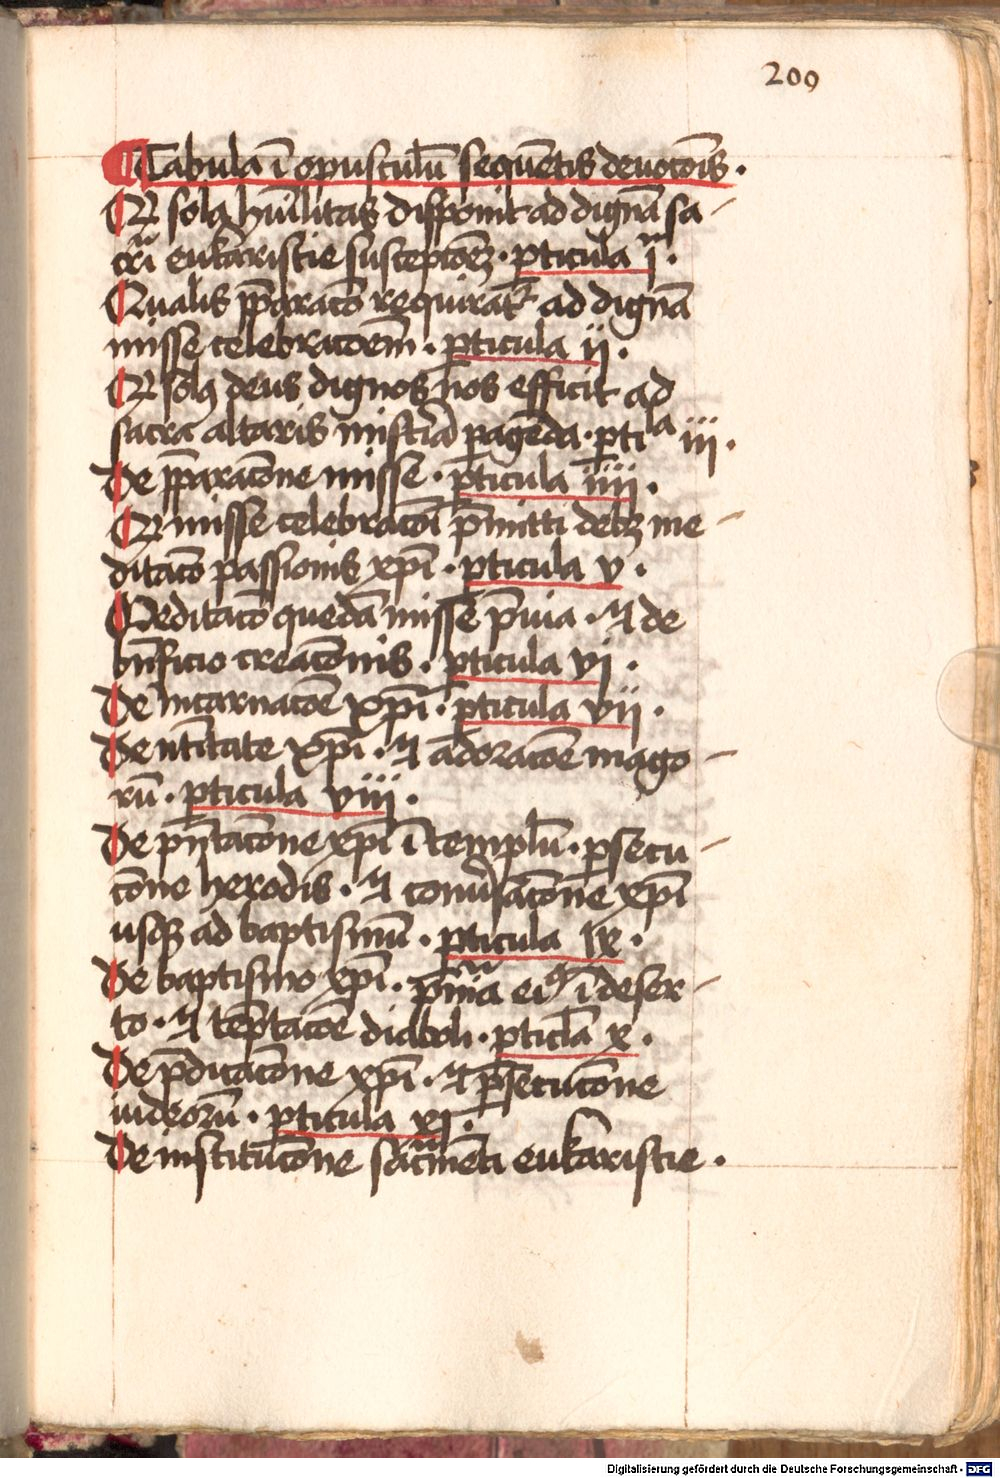 209
Tabula ī opusculū sequētis deuotōis.
Q sola hūilitas disponit ad dignā sa-
crī eukaristie suscepcōeꝫ. pticula j.
Qualis ꝑparacō requirat ad dignā
misse celebracōem. pticula ij.
Q solꝰ deus dignos nos efficit ad
sacra altaris mistia pagēda. ptila iij.
De ꝑparacōne misse. pticula iiij.
Q misse celebracōī pmitti debꝫ me-
ditacō passionis xpī. pticula v.
Meditacō quedā misse pͥuia. ⁊ de
bn̄ficio creacōnis. pticula vj.
De incarnacōe xpī. pticula vij.
De ntītate xpī. ⁊ adoracōe mago-
rū. pticula viij.
De pn̄tacōne xpī ī templū. psecu-
cōne herodis. ⁊ conuͥsacōne xpī
usqꝫ ad baptismū. pticula ix.
De baptismo xpī. pn̄ia eiꝰ ī deser-
to. ⁊ tēptacōe diaboli. pticla x.
De pdicacōne xpī. ⁊ psecucōne
iudeorū. pticula xj.
De institucōne sacmēti eukaristie.
Digitalisierung gefördert durch die Deutsche Forschungsgemeinschaft - DFG